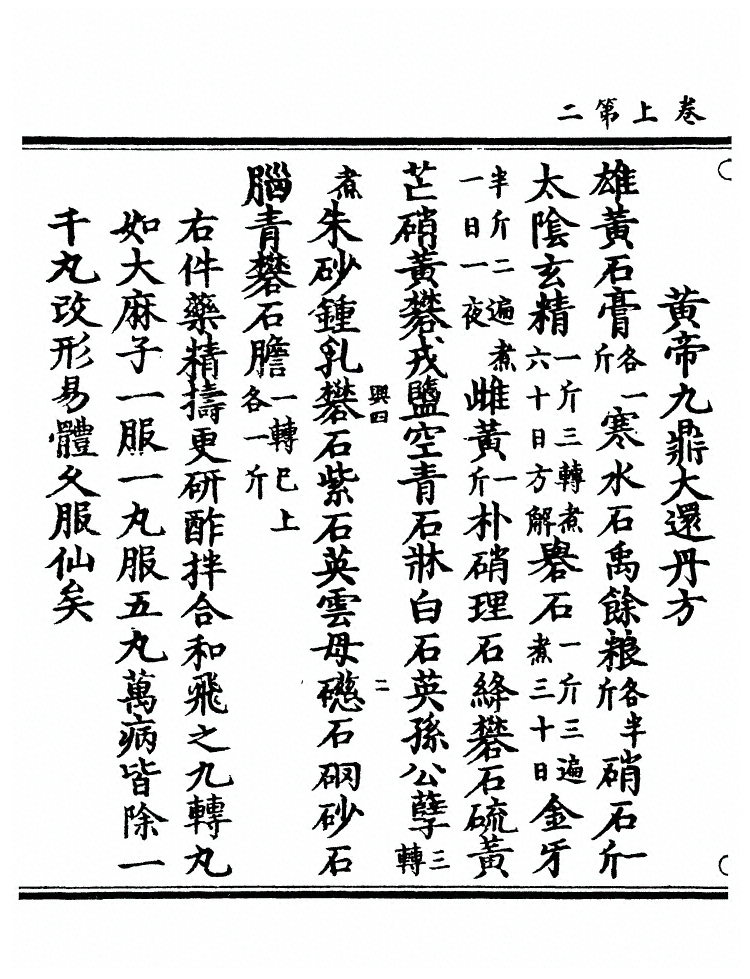 卷上第二
黄帝九鼎大還丹方
雄黄石膏各一斤寒水石禹餘粮各半斤硝石一斤
太陰玄精一斤三轉煮六十日方解礜石一斤三遍煮三十日金牙
半斤二遍煮一日一夜雌黄一斤朴硝理石絳礬石硫黄
芒硝黄礬戎鹽空青石牀白石英孫公孽三轉
與四
二
煮朱砂鍾乳礬石紫石英雲母礠石硇砂石
腦青礬石膽一轉巳上各一斤
右件藥精擣更研酢拌合和飛之九轉丸
如大麻子一服一丸服五丸萬病皆除一
千丸改形易體久服仙矣